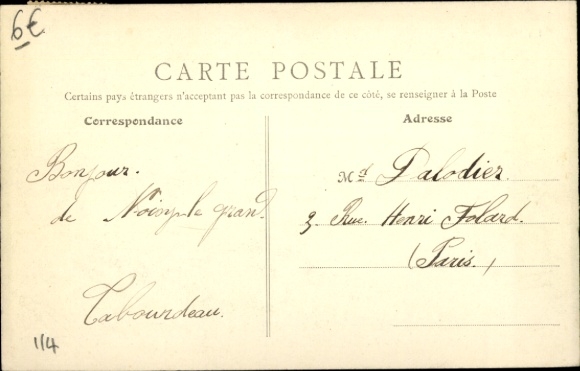 6€
CARTE POSTALE
Certains pays étrangers n'acceptant pas la correspondance de ce côté, se renseigner à la Poste
Correspondance
Bonjour.
de Noisy-le grand
Tabourdeau.
114
Adresse
Md Palodier
3 Rue. Henri Folard.
(Paris.)